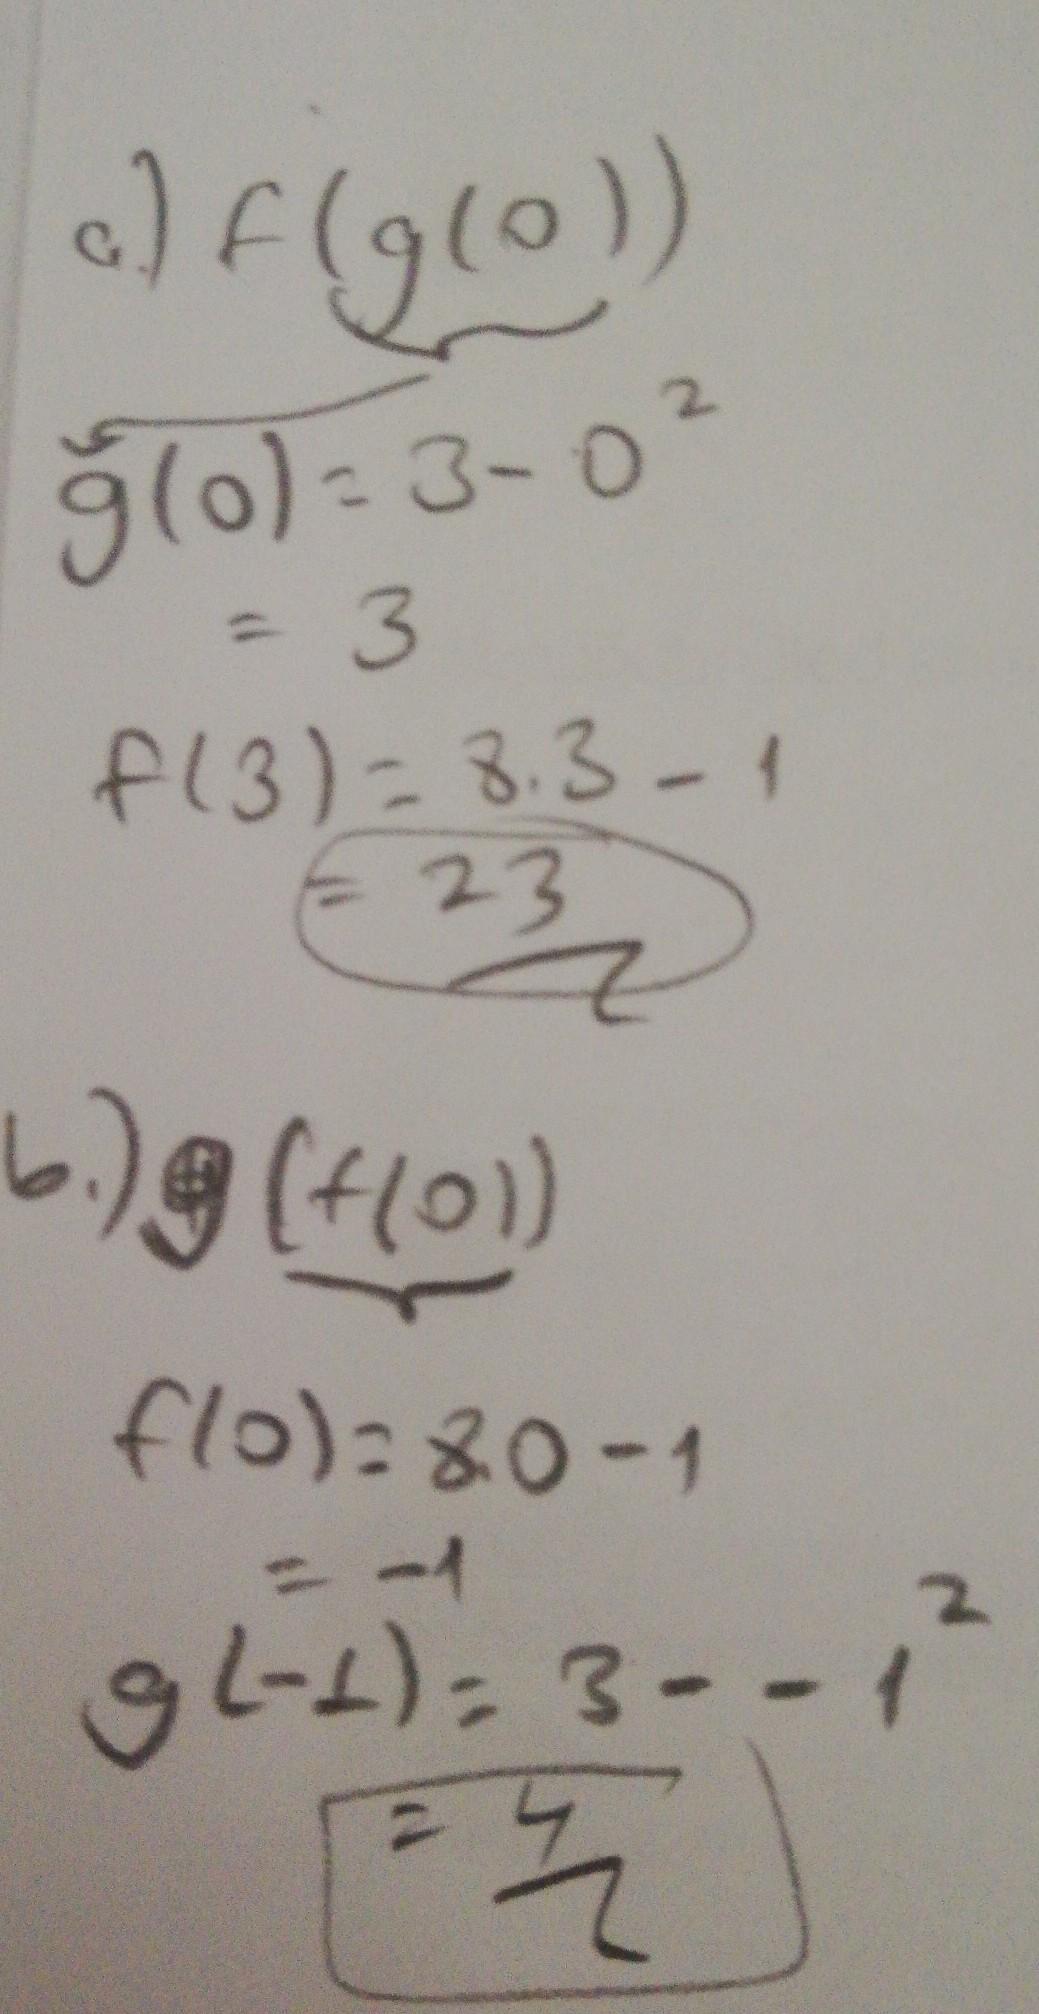 a.) f(g(0))
g(0) = 3 - 0²
= 3
f(3) = 8.3 - 1
= 23
b.) g(f(0))
f(0) = 8.0 - 1
= -1
g(-1) = 3 - - 1²
= 4